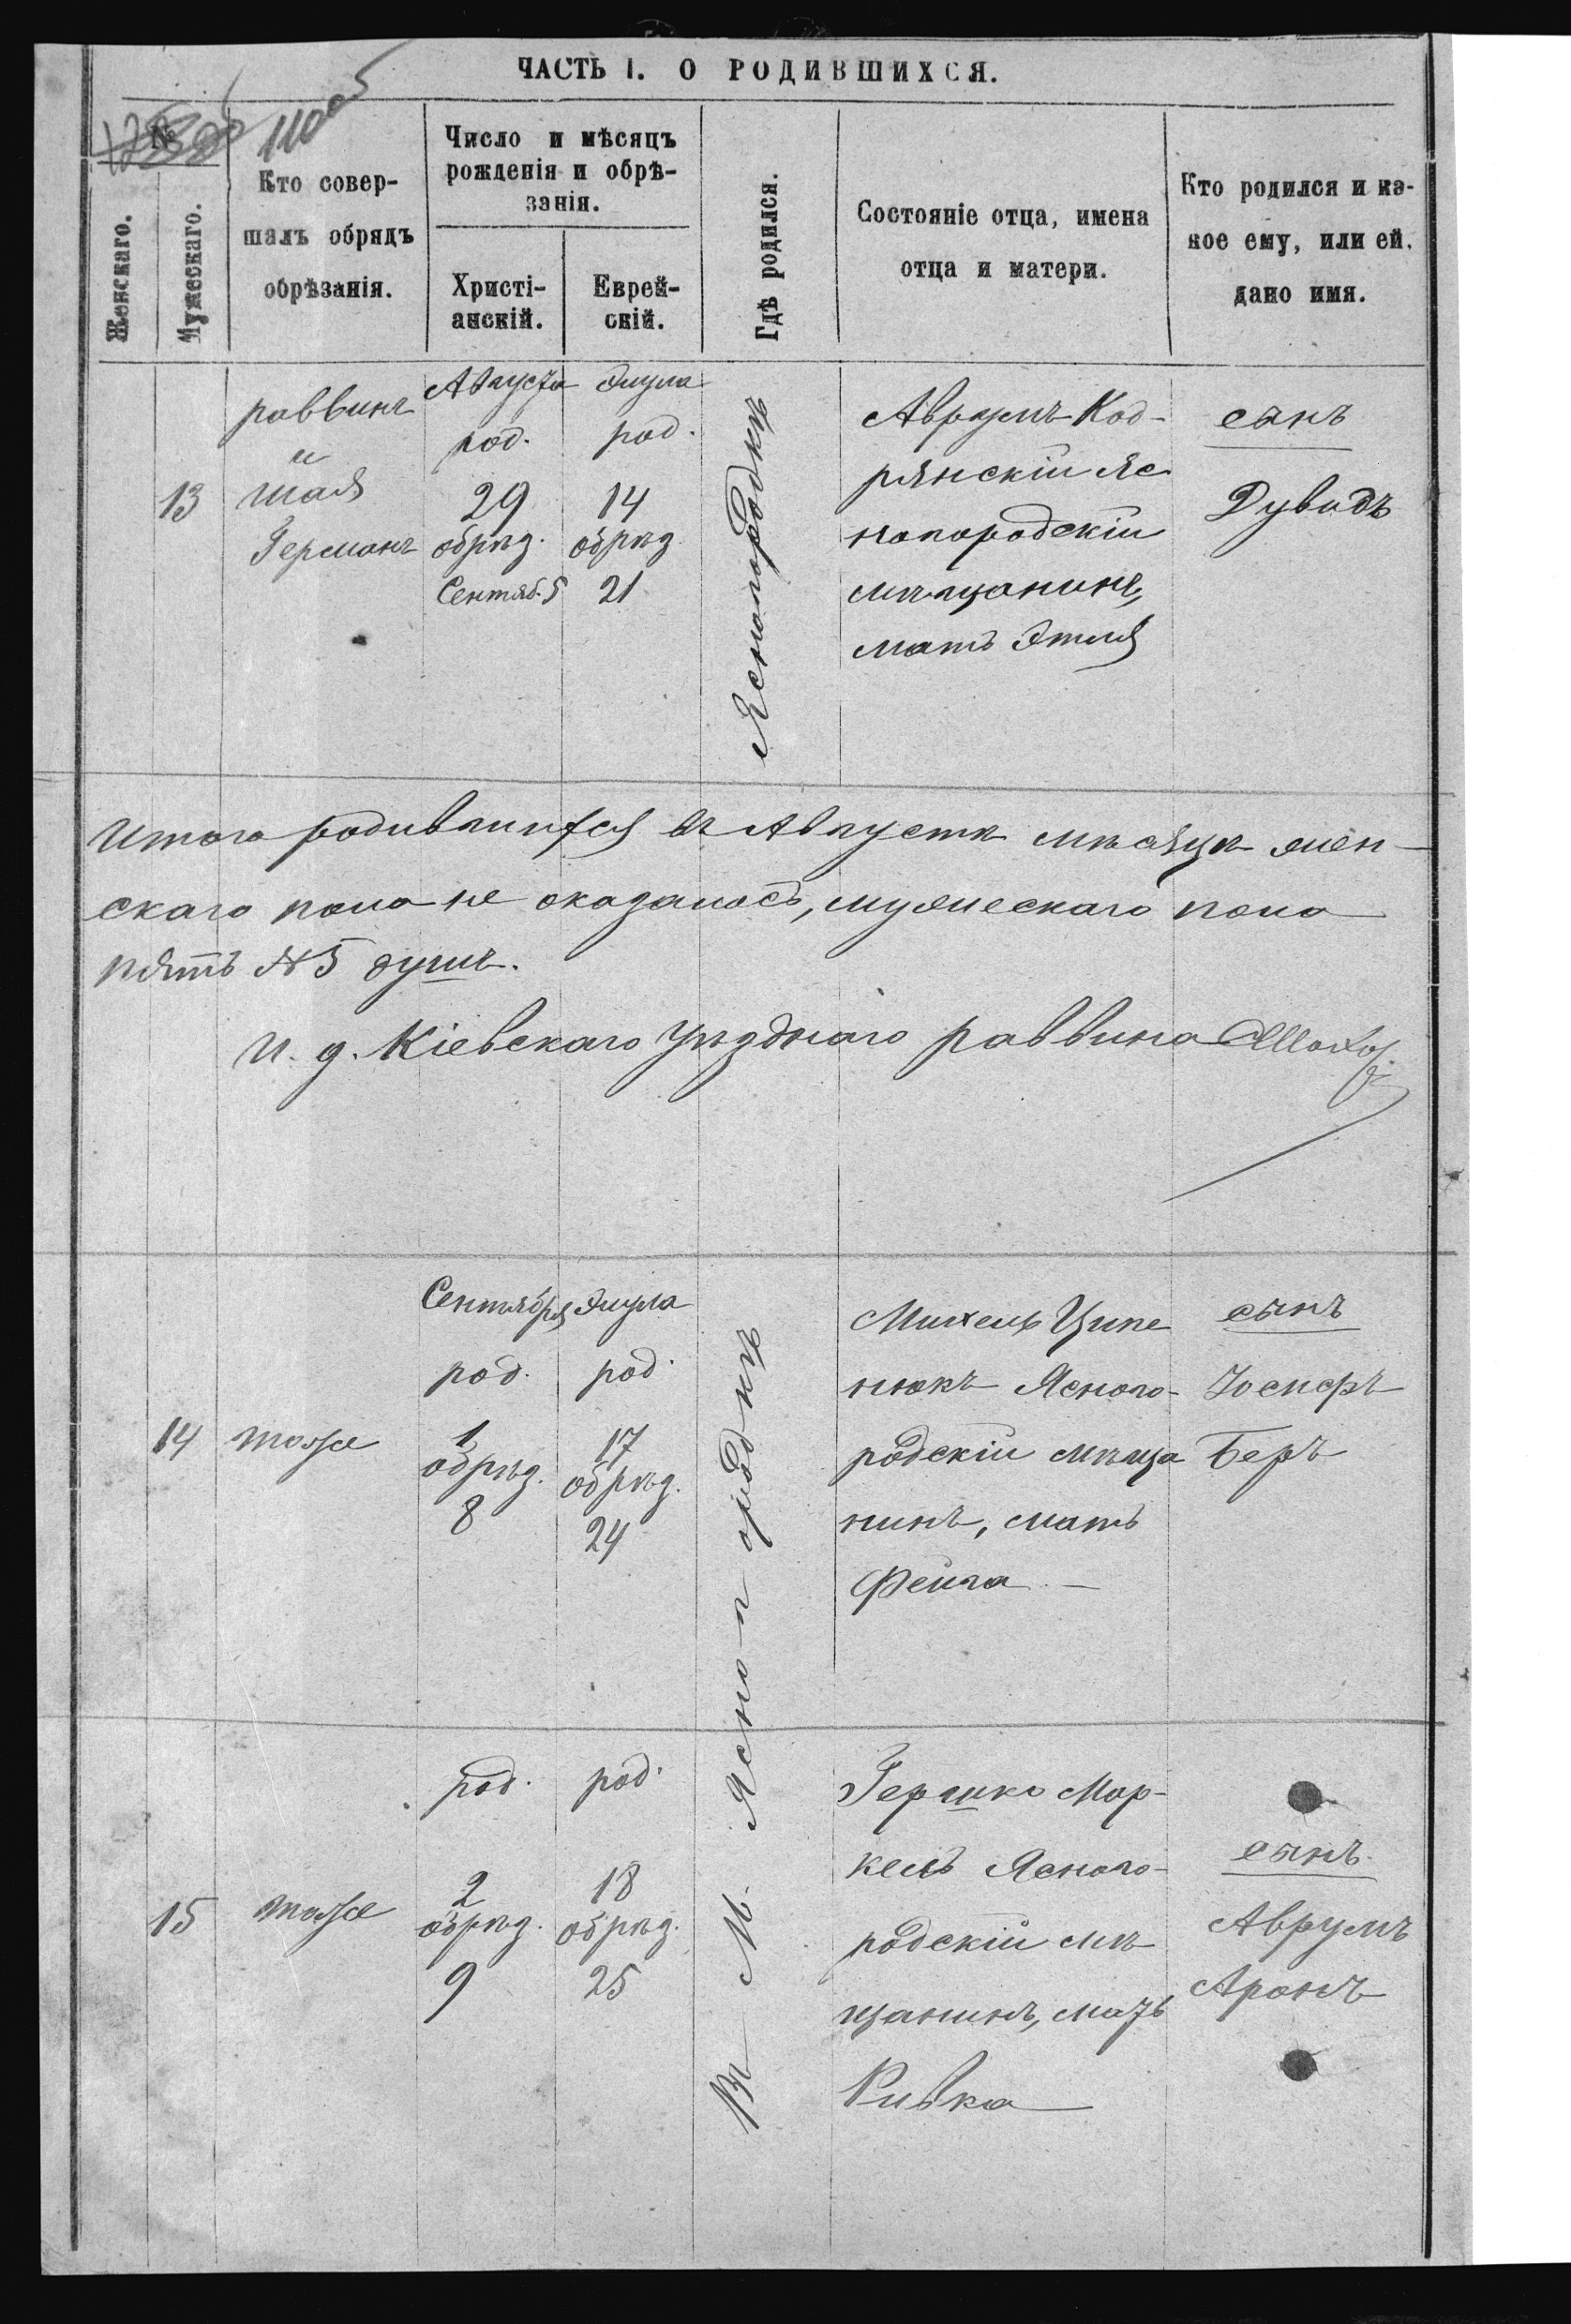 ЧАСТЬ I. О РОДИВШИХСЯ.
№
Женскаго.
Мужескаго.
Кто совер-
шалъ обрядъ
обрѣзанія.
Число и мѣсяцъ
рожденія и обрѣ-
занія.
Христі-
анскій.
Еврей-
скій.
Гдѣ родился.
Состояніе отца, имена
отца и матери.
Кто родился и ка-
кое ему, или ей,
дано имя.
13
раввинъ
и
Шая
Германъ
Августа
род.
29
обрѣз.
Сентяб. 5
Элула
род.
14
обрѣз.
21
Ясногородкѣ
Аврумъ Код-
рянскій Яс
ногородскій
мѣщанинъ,
мать Этля
сынъ
Дувидъ
Итого родившихся въ Августѣ мѣсяцѣ жен-
скаго пола не оказалось, мужескаго пола
пять № 5 душъ.
И. д. Кіевскаго Уѣзднаго раввина
14
тоже
Сентября
род.
1
обрѣз.
8
Элула
род.
17
обрѣз.
24
Въ М. Ясногородкѣ
Михель Ципе
нюкъ Ясного-
родскій мѣща
нинъ, мать
Фейга —
сынъ
Іосифъ
Беръ
15
тоже
род.
2
обрѣз.
9
род.
18
обрѣз.
25
Гершко Мар-
кель Ясного-
родскій мѣ
щанинъ, мать
Ривка
сынъ
Аврумъ
Аронъ